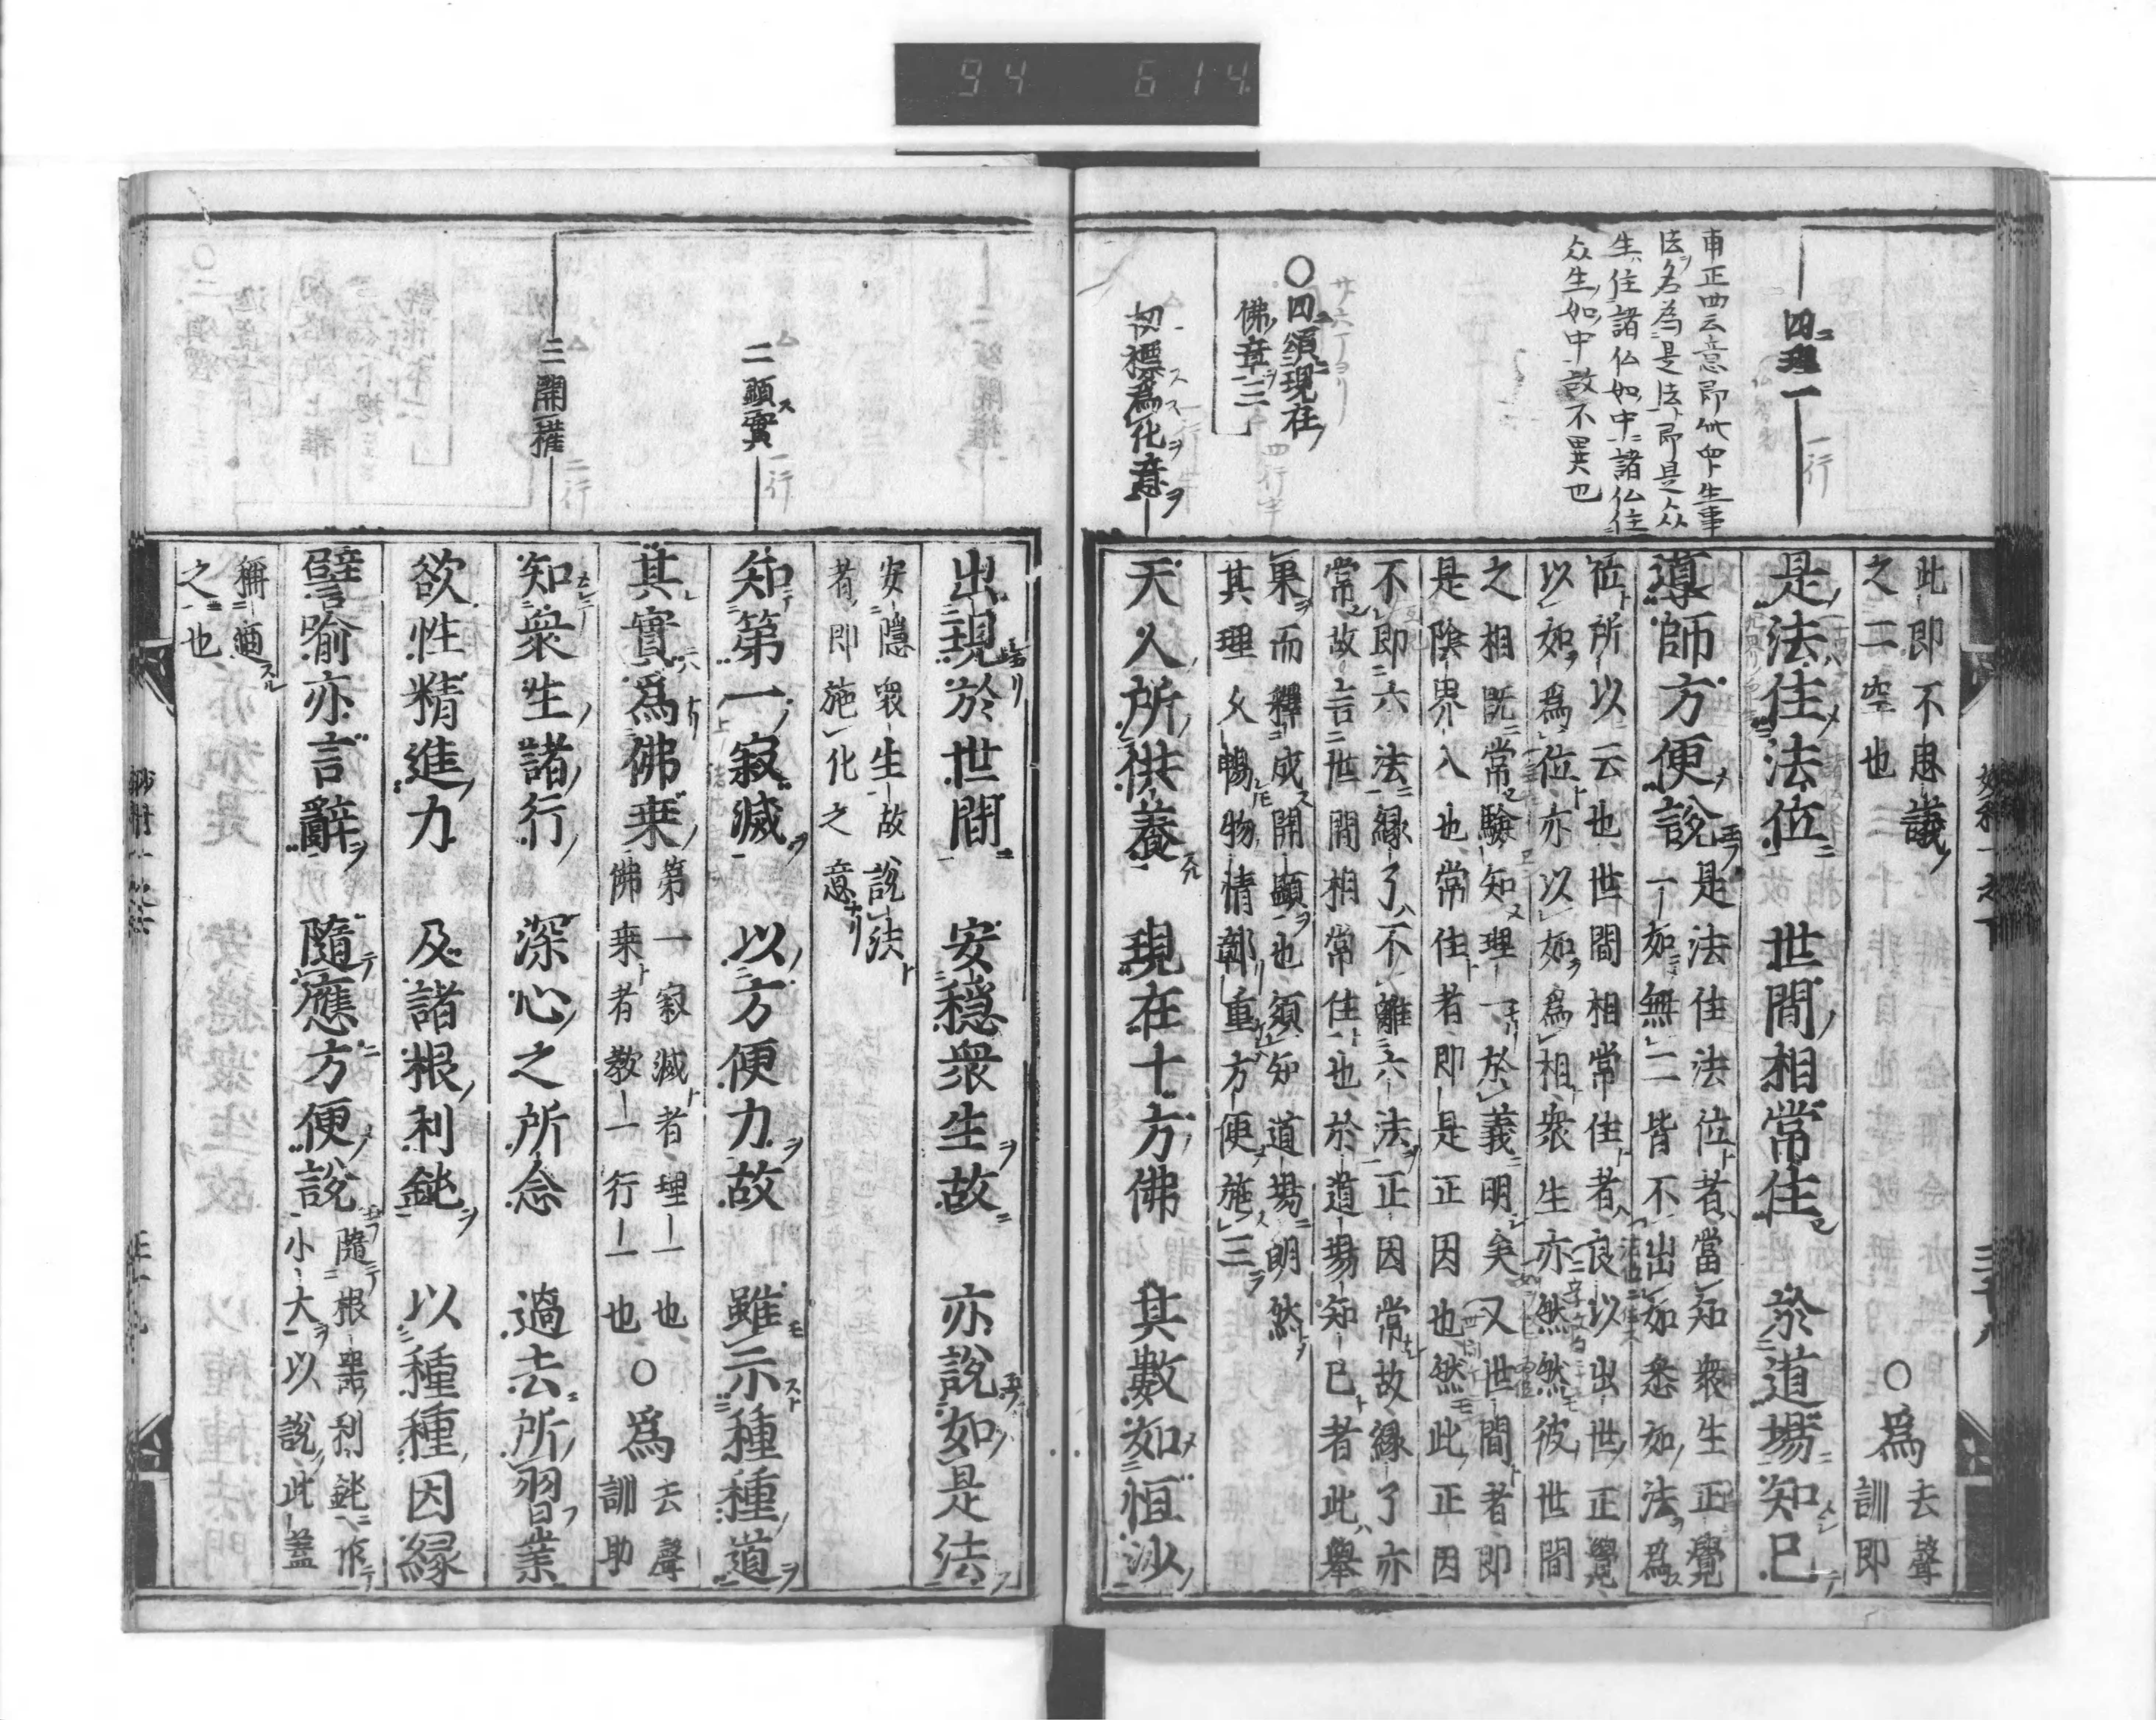 94 614
四理一
一行
是法名為是法即是众
生住諸仏如中諸仏住
众生如中故不異也
○四頌現在
佛章三
初標為化意
此即不思議
之二空也
○為
去聲
訓即
是法住法位 世間相常住 於道場知已
導師方便說
是法住法位者當知衆生正覺
一如無二皆不出如悉如法為
位所以云也世間相常住者良以出世正覺
以如為位亦以如為相衆生亦然然彼世間
之相既常驗知理一於義明矣又世間者即
是陰界入也常住者即是正因也然此正因
不即六法緣了不離六法正因常故緣了亦
常故言世間相常住也於道場知已者此舉
果而釋成開顯也須知道場朗然
其理久暢物情鄣重方便施三
天人所供養 現在十方佛 其數如恒沙
二顯實
一行
三開權
二行
出現於世間 安穩衆生故 亦說如是法
安隱衆生故說法
者即施化之意
知第一寂滅 以方便力故 雖示種種道
其實為佛乗
第一寂滅者理一也
佛乗者教一行一也
○為
去聲
訓助
知衆生諸行 深心之所念 過去所習業
欲性精進力 及諸根利鈍 以種種因緣
譬喻亦言辭 隨應方便說
隨根器利鈍作
小大以說此蓋
稱適
之也